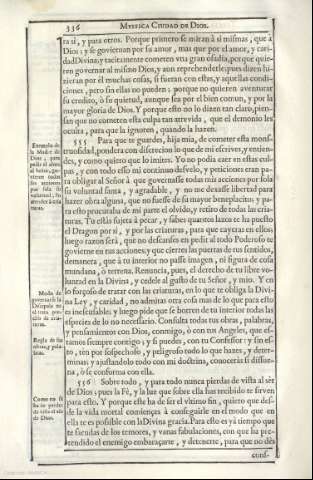 336 MYSTICA CIUDAD DE DIOS.
ra sì, y para otros. Porque primero se miran à si mismas, que à
Dios: y se goviernan por su amor, mas que por el amor, y cari-
dad Divina; y tacitamente cometen esta gran osadia, por que quie-
ren governar al mismo Dios, y aun reprehenderle; pues dizen hi-
zieran por el muchas cosas, si fueran con estas, y aquellas condi-
ciones, pero sin ellas no pueden: porque no quieren aventurar
su credito, ò su quietud, aunque sea por el bien comun, y por la
mayor gloria de Dios. Y porque esto no lo dizen tan claro, pien-
san que no cometen esta culpa tan atrevida, que el demonio les
oculta, para que la ignoren, quando la hazen.
555 Para que te guardes, hija mia, de cometer esta mons-
truosidad, pondera con discrecion lo que de mi escrives, y entien-
des, y como quiero que lo imites. Yo no podia caer en estas cul-
pas, y con todo esso mi continuo desvelo, y peticiones eran pa-
ra obligar al Señor à que governasse todas mis acciones por sola
su voluntad santa, y agradable, y no me dexasse libertad para
hazer obra alguna, que no fuesse de su mayor beneplacito: y pa-
ra esto procuraba de mi parte el olvido, y retiro de todas las cria-
turas. Tu estàs sujeta à pecar, y sabes quantos lazos te ha puesto
el Dragon por sì, y por las criaturas, para que cayeras en ellos;
luego razon serà, que no descanses en pedir al todo Poderoso te
govierne en tus acciones; y que cierres las puertas de tus sentidos,
demanera, que à tu interior no passe imagen, ni figura de cosa
mundana, ò terrena. Renuncia, pues, el derecho de tu libre vo-
luntad en la Divina, y cedele al gusto de tu Señor, y mio. Y en
lo forçoso de tratar con las criaturas, en lo que te obliga la Divi-
na Ley, y caridad, no admitas otra cosa mas de lo que para esto
es inescusable; y luego pide que se borren de tu interior todas las
especies de lo no necessario. Consulta todas tus obras, palabras,
y pensamientos con Dios, conmigo, ò con tus Angeles, que es-
tamos siempre contigo; y si puedes, con tu Confessor: y sin es-
to, ten por sospechoso, y peligroso todo lo que hazes, y deter-
minas: y ajustandolo todo con mi doctrina, conoceràs si disue-
na, ò se conforma con ella.
556 Sobre todo, y para todo nunca pierdas de vista al sèr
de Dios; pues la Fè, y la luz que sobre ella has recibido te sirven
para esto. Y porque este ha de ser el vltimo fin, quiero que des-
de la vida mortal comiençes à conseguirle en el modo que en
ella te es possible con la Divina gracia. Para esto es yà tiempo que
te sacudas de los temores, y vanas fabulaciones, con que ha pre-
tendido el enemigo embaraçarte, y detenerte, para que no dès
cons-
Exemplo de
la Madre de
Dios, para
pedir al
Señor,
todas
sus acciones
por sola su
voluntad, y
à las cria-
turas.
Modo de
la
Discipula
en el trato
preciso de
criaturas.
Regla de las
obras, y pala-
bras.
Como no se
ha de perder
de vista el sèr
de Dios.